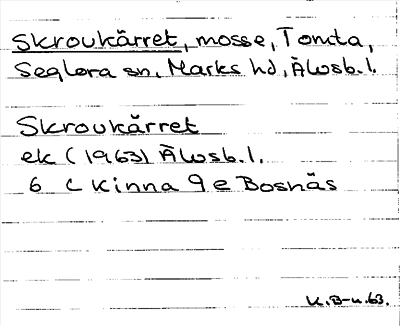 Skroukärret, mosse, Tomta,
Seglora sn, Marks hd, Älvsb.l.
Skroukärret
ek (1963) Älvsb.l.
6 c Kinna 9 e Bosnäs
K.B-u.63.